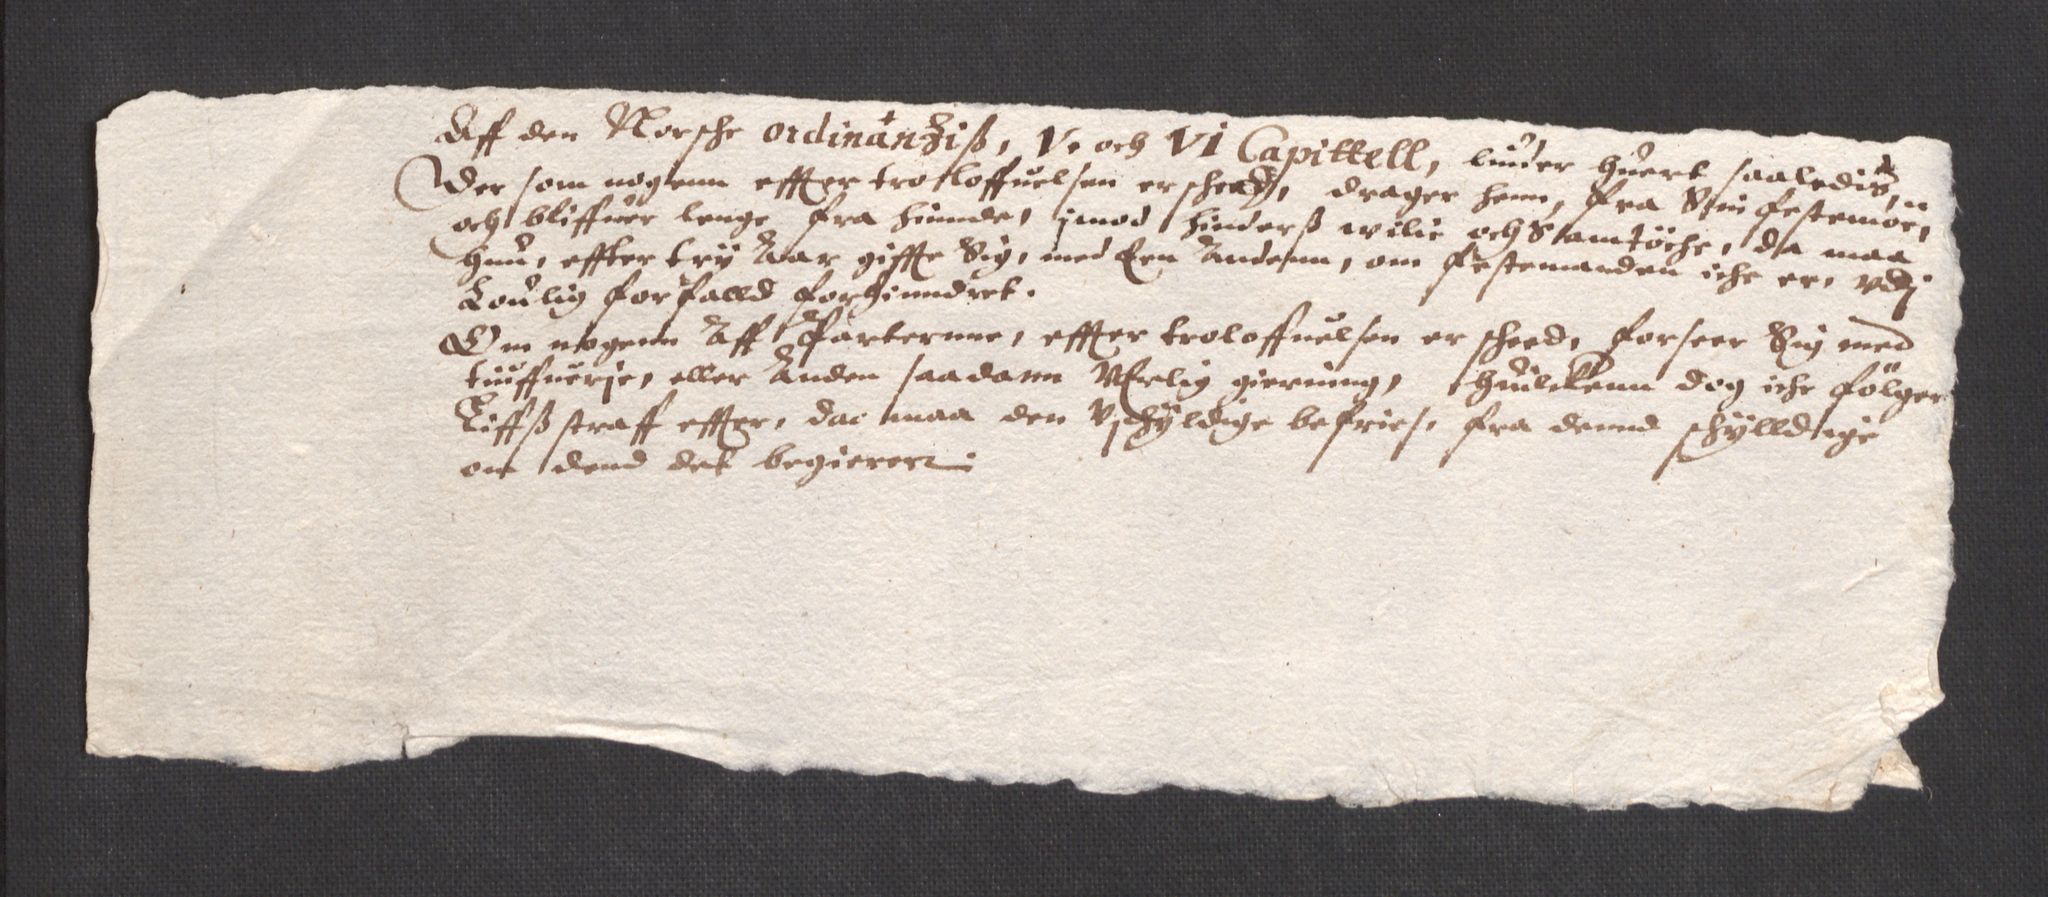 Aff den Norsche ordinantziß, V. och VI Capittell, liuder huert saaledis,
Der som nogenn effter trolloffuelsen er scheed, drager henn, fra Sin festemøe,
och bliffuer lenge fra hinnde, imod hinderß wilie och Samtöche, da maa
hun, effter try Aar giffte Sig, med Een Andenn, om festemanden iche er, vdj
Loulig forfalld forhinndret.
Om nogenn Aff Parterne, effter troloffuelsen er scheed, forseer Sig med
tiuffuerje, eller Anden saadann VErlig gierning, huilckenn dog iche følger
Liffß straff effter, da maa den Vschyldige befries, fra dennd schylldige
om dend det begierer